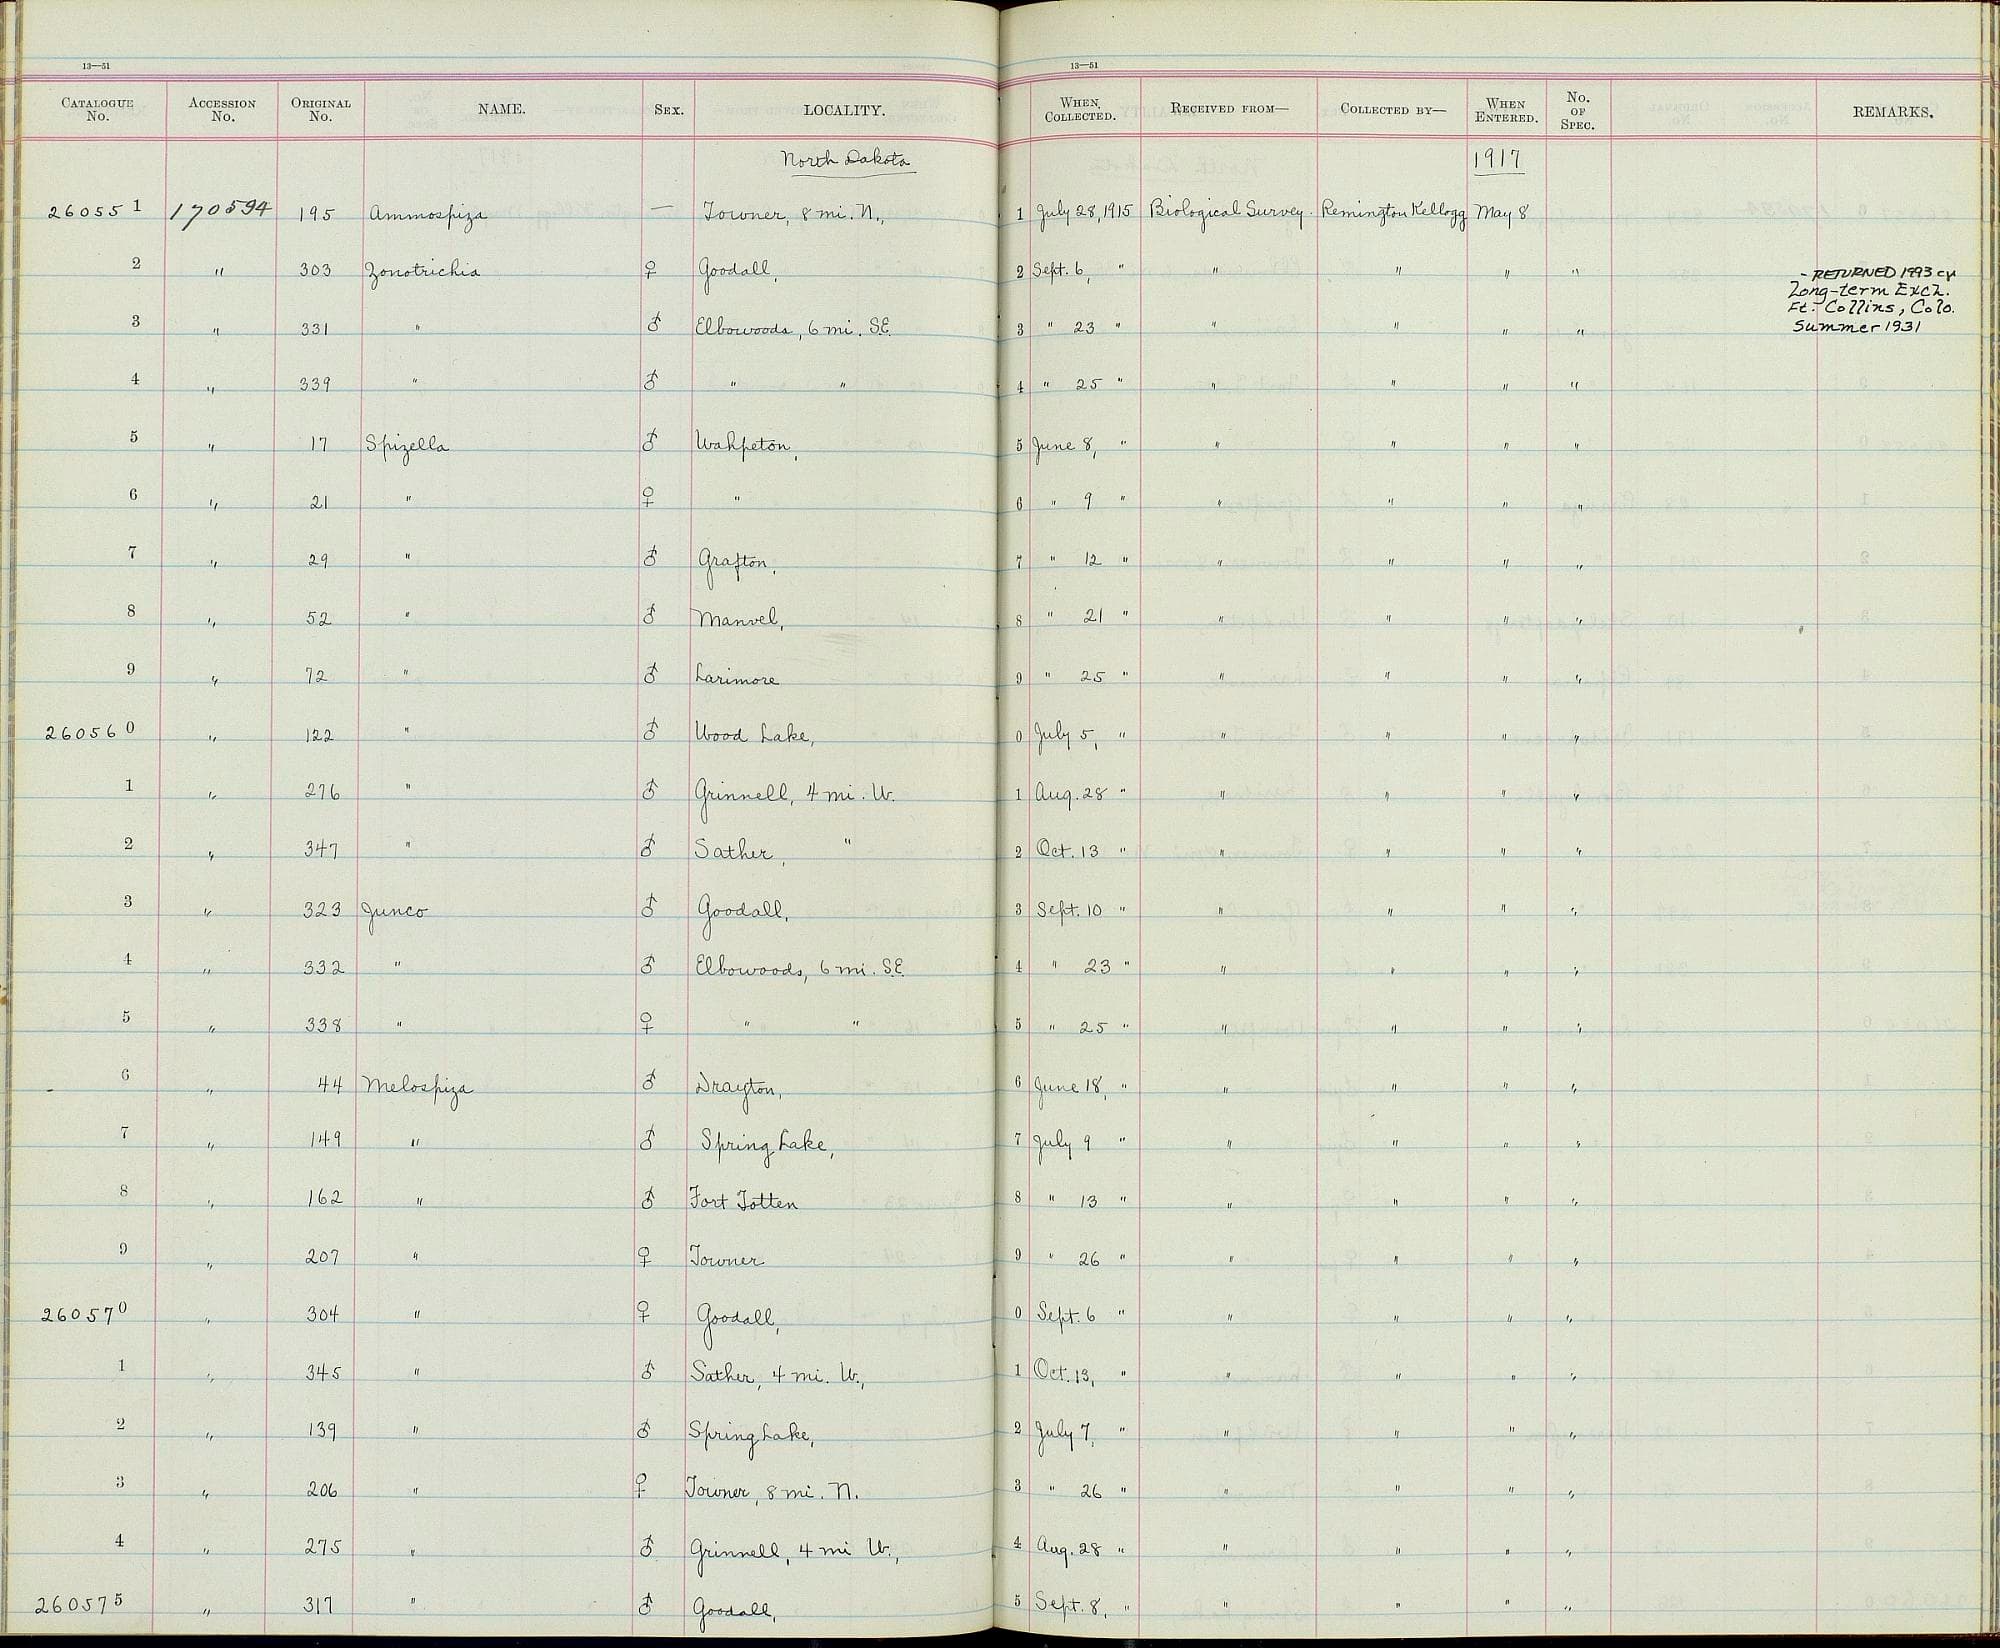 13—51 13—51
Catalogue No. Accession No. Original No. NAME. Sex. LOCALITY. When Collected. Received from— Collected by— When Entered. No. of Spec. REMARKS.
North Dakota 1917
260551 170594 195 Ammospiza — Towner, 8 mi. N., 1 July 28, 1915 Biological Survey. Remington Kellogg May 8
2 " 303 Zonotrichia ♀ Goodall, 2 Sept. 6, " " " " "
- RETURNED 1993 cy
Long-term Exch.
Ft. Collins, Colo.
Summer 1931
3 " 331 " ♂ Elbowoods, 6 mi. S.E. 3 " 23 " " " " "
4 " 339 " ♂ " " 4 " 25 " " " " "
5 " 17 Spizella ♂ Wahpeton, 5 June 8, " " " " "
6 " 21 " ♀ " 6 " 9 " " " " "
7 " 29 " ♂ Grafton, 7 " 12 " " " " "
8 " 52 " ♂ Manvel, 8 " 21 " " " " "
9 " 72 " ♂ Larimore 9 " 25 " " " " "
260560 " 122 " ♂ Wood Lake, 0 July 5, " " " " "
1 " 276 " ♂ Grinnell, 4 mi. W. 1 Aug. 28 " " " " "
2 " 347 " ♂ Sather, " 2 Oct. 13 " " " " "
3 " 323 Junco ♂ Goodall, 3 Sept. 10 " " " " "
4 " 332 " ♂ Elbowoods, 6 mi. S.E. 4 " 23 " " " " "
5 " 338 " ♀ " " 5 " 25 " " " " "
6 " 44 Melospiza ♂ Drayton, 6 June 18, " " " " "
7 " 149 " ♂ Spring Lake, 7 July 9 " " " " "
8 " 162 " ♂ Fort Totten 8 " 13 " " " " "
9 " 207 " ♀ Towner 9 " 26 " " " " "
260570 " 304 " ♀ Goodall, 0 Sept. 6 " " " " "
1 " 345 " ♂ Sather, 4 mi. W., 1 Oct. 13, " " " " "
2 " 139 " ♂ Spring Lake, 2 July 7, " " " " "
3 " 206 " ♀ Towner, 8 mi. N. 3 " 26 " " " " "
4 " 275 " ♂ Grinnell, 4 mi W., 4 Aug. 28 " " " " "
260575 " 317 " ♂ Goodall, 5 Sept. 8, " " " " "